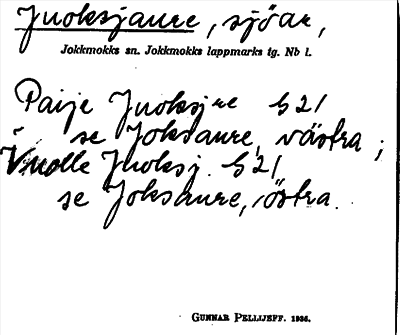 Juoksjaure, sjöar,
Jokkmokks sn. Jokkmokks lappmarks tg. Nb l.
Paije Juoksjre S21
se Joksaure, västra;
Vuolle Juoksj. S21
se Joksaure, östra.
GUNNAR PELLIJEFF. 1936.